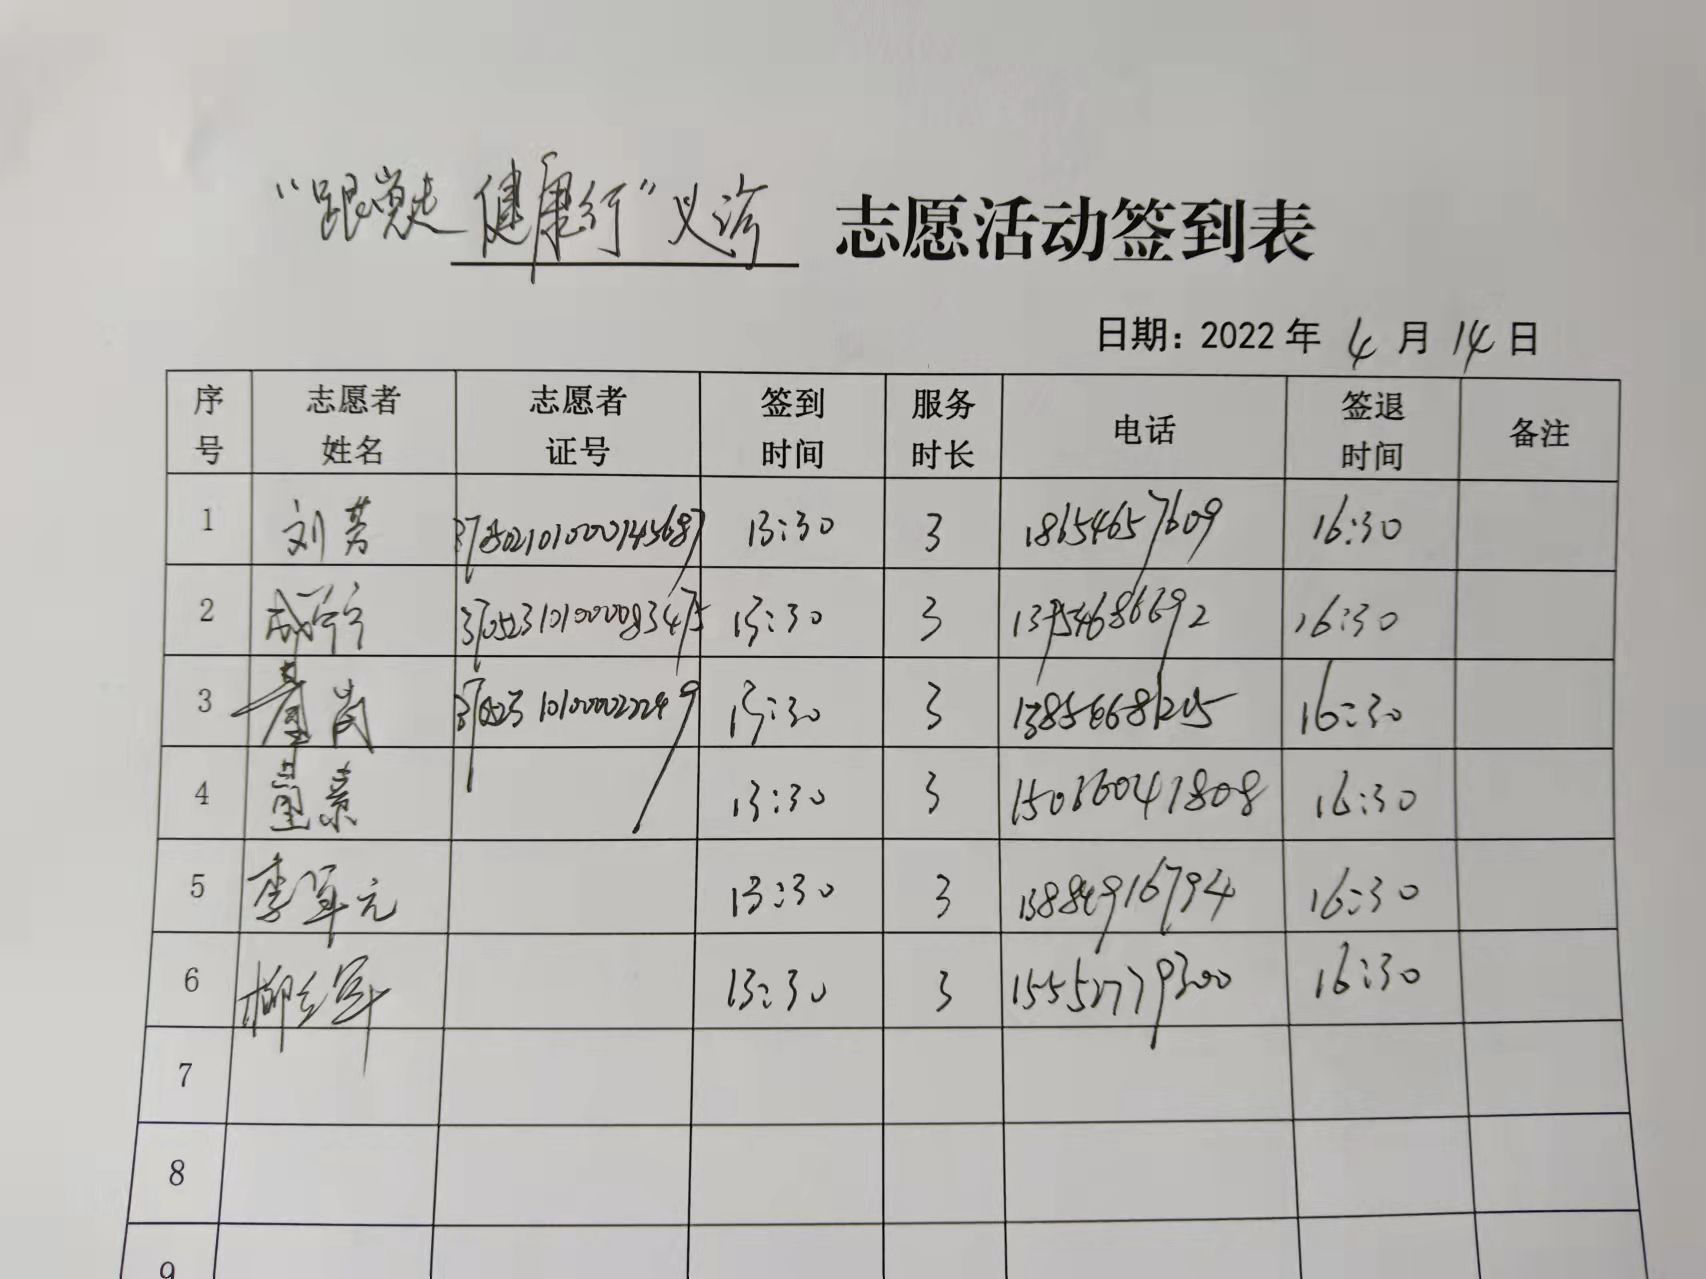 “跟党走 健康行”义诊 志愿活动签到表
日期：2022 年 4 月 14 日
序号 志愿者姓名 志愿者证号 签到时间 服务时长 电话 签退时间 备注
1 刘芳 13:30 3 18654657609 16:30
2 13:30 3 13754686692 16:30
3 13:30 3 16:30
4 13:30 3 16:30
5 李军元 13:30 3 16:30
6 13:30 3 15552779300 16:30
7
8
9